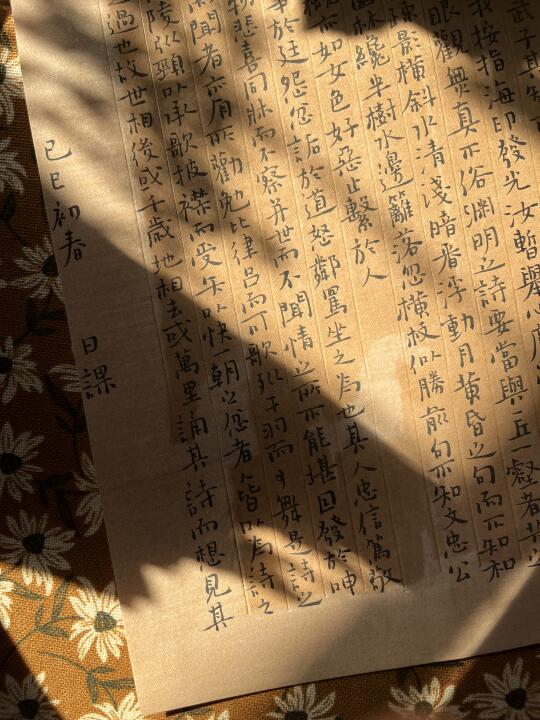 武子其知可
我按指海印發光汝暫舉心塵
眼觀無真不俗淵明之詩要當與丘一壑者共之
疎影橫斜水清淺暗香浮動月黃昏之句而不知和
園林纔半樹水邊籬落忽橫枝似勝前句不知文忠公
亦如女色好惡止繫於人
爭於廷怨忿詬於道怒鄰罵坐之為也其人忠信篤敬
物悲喜同牀而不察并世而不聞情之所不能堪因發於呻
聞者亦有所勸勉比律呂而可歌列干羽而可舞是詩之
陵引頸以承歌披襟而受矢以快一朝之忿者人皆以為詩之
過也故世相後或千歲地相去或萬里誦其詩而想見其
己巳初春 日課